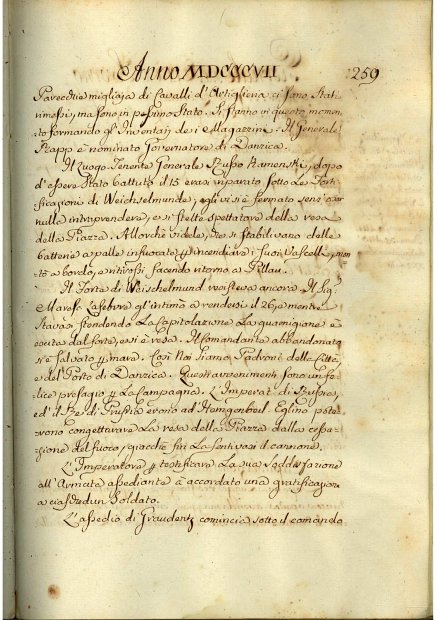 Anno MDCCCVII 259
Parecchie migliaja di Cavalli d'Artiglieria ci sono Stati
rimessi, ma sono in pessimo Stato. Si stanno in questo momen-
to formando gl'Inventarj de i Magazzini. Il Generale
Rapp è nominato Governatore di Danzica.
Il Luogo Tenente Generale Russo Kamenski, dopo
d'essere Stato battuto il 15 erasi riparato sotto Le Forti-
ficazioni di Weichselmunde, egli vi si è fermato senz'aver
nulla intrapreso, e si stette spettatore della resa
della Piazza. Allorchè vide, che si stabilivano delle
batterie a palle infuocate incendiare i suoi Vascelli, mon-
tò a bordo, e ritirossi facendo ritorno a Pillau.
Il Forte di Weischelmund resisteva ancora. Il Sig.r
Maresc. Lefebvre gl'intimò a rendersi il 26, e mentre
Stavasi stendendo La Capitolazione La guarnigione è
escita dal forte, essi è resa. Il Comandante abbandonato
si è salvato mare. Così Noi Siamo Padroni della Città,
e del Porto di Danzica. Questi avvenimenti sono un fe-
lice presagio La Campagna. L'Imperat. di Russia,
ed il Re di Prussia erano ad Heiligenbeil. Eglino pote-
vono congetturare La resa della Piazza dalla cessa-
zione del fuoco, giacchè fin La sentivasi il cannone.
L'Imperatore testificare La sua Soddisfazione
all'Armata assediante à accordato una gratificazione
a ciaschedun Soldato.
L'assedio di Graudentz comincia sotto il comando